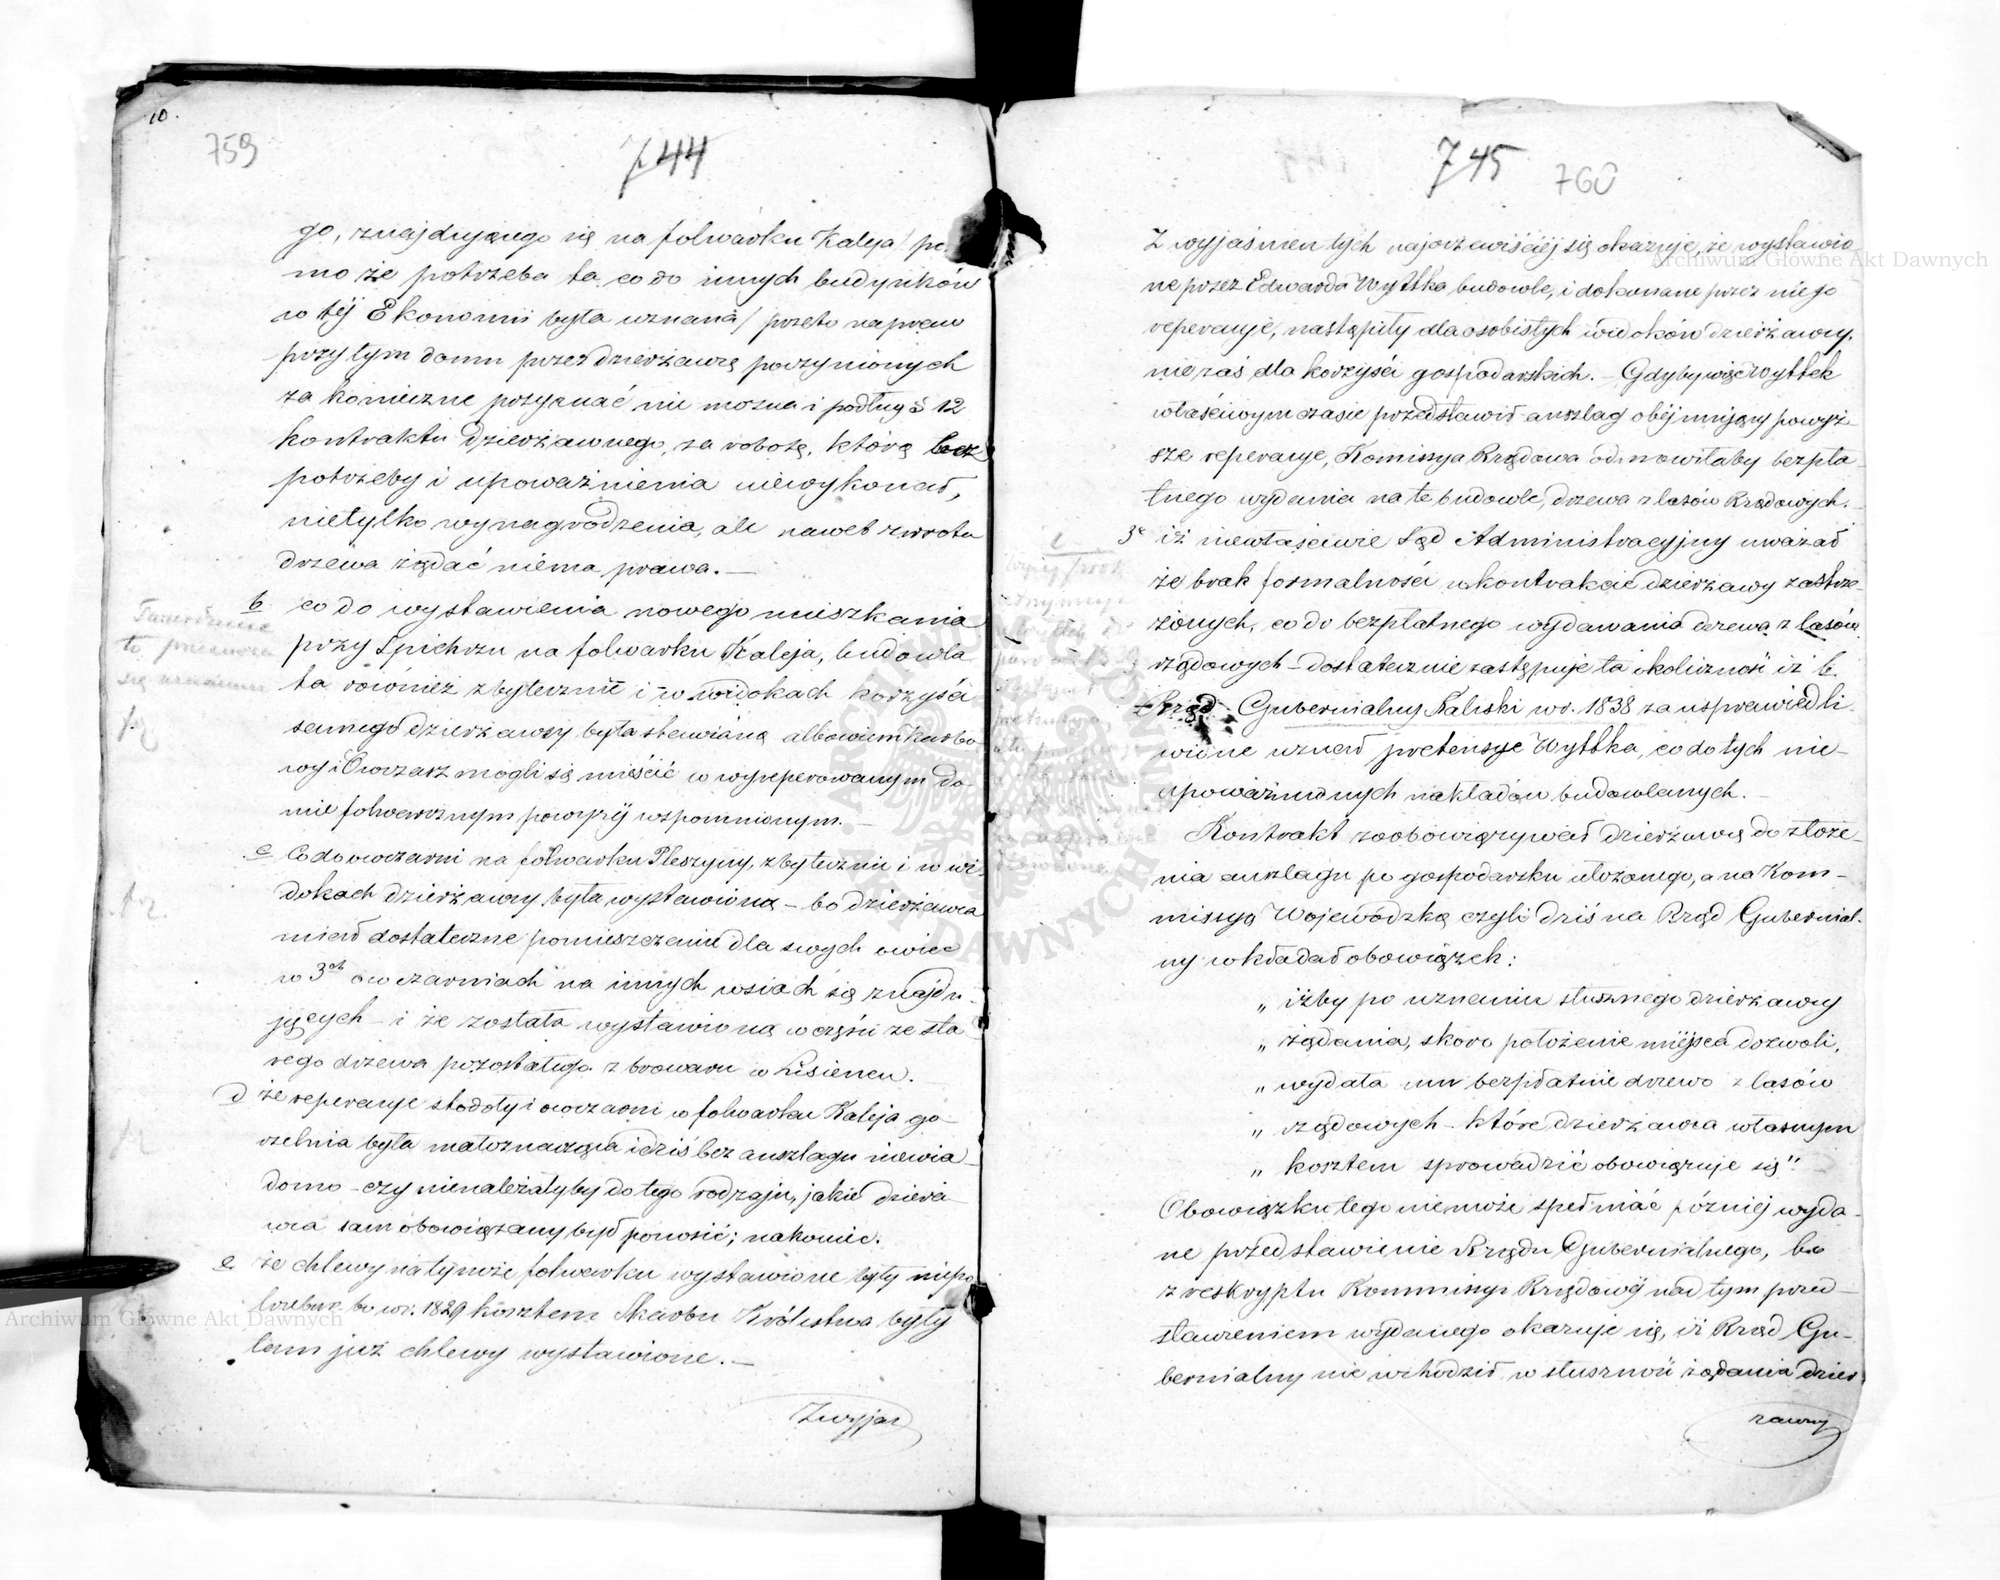 10.
759
744
go, znajdującego się na folwarku Kaleja/ po
mo że potrzeba ta, co do innych budynków
w téj Ekonomii była uznaną/ przeto napraw
przy tym domu przez dzierżawcę poczynionych
za konieczne przyznać nie można i podług § 12
kontraktu dzierżawnego, za robotę, którą bez
potrzeby i upoważnienia niewykonał,
nietylko wynagrodzenia, ale nawet zwrotu
drzewa żądać niema prawa. —
b. co do wystawienia nowego mieszkania
przy Spichrzu na folwarku Kaleja, budowla
ta również zbytecznie i w widokach korzyści
samego dzierżawcy była stawianą albowiem Karbo
wy i Owczarz mogli się mieścić w wyreperowanym do-
mie folwarcznym powyżéj wspomnionym. —
c. Co do owczarni na folwarku Pleszyny, zbytecznie i w wi
dokach dzierżawcy była wystawioną – bo dzierżawca
miał dostateczne pomieszczenie dla swych owiec
w 3ch owczarniach na innych wsiach się znajdu-
jących – i że została wystawioną w części ze sta
rego drzewa pozostałego z browaru w Lisiencu. —
d że reperacye stodoły i owczarni w folwarku Kaleja go-
rzelnia była małoznaczącą i dziś bez anszlagu niewia
domo – czy nienależałyby do tego rodzaju, jakie dzierża
wca sam obowiązany był ponosić; nakoniec.
e. że chlewy na tymże folwarku wystawione były niepo
trzebnie bo w r. 1829 kosztem Skarbu Królestwa były
tam już chlewy wystawione. —
Z wyjaś
745
760
Z wyjaśnień tych najoczewiściéj się okazuje, że wystawio
ne przez Edwarda Wyttka budowle, i dokonane przez niego
reperacye, nastąpiły dla osobistych widoków dzierżawcy,
nie zaś dla korzyści gospodarskich. – Gdyby więc Wyttek
właściwym czasie przedstawił anszlag obéjmujący powyż
sze reperacye, Kommissya Rządowa odmowiłaby bezpła
tnego wydania na te budowle, drzewa z lasów Rządowych. –
3e iż niewłaściwie Sąd Administracyjny uważał
że brak formalności w kontrakcie dzierżawy zastrze
żonych, co do bezpłatnego wydawania drzewa z lasów
rządowych – dostatecznie zastępuje ta okoliczność iż b.
Rząd Gubernialny Kaliski w r. 1838 za usprawiedli
wione uznał pretensye Wyttka, co do tych nie-
upoważnionych nakładów budowlanych. –
Kontrakt zaobowiązywał dzierżawcę do złoże-
nia anszlagu po gospodarsku ułożonego, a na Kom-
missyą Wojewódzką czyli dziś na Rząd Gubernial-
ny wkładał obowiązek:
„ iżby po uznaniu słusznego dzierżawcy
„ żądania, skoro położenie miéjsca dozwoli,
„ wydała mu bezpłatnie drzewo z lasów
„ rządowych – które dzierżawca własnym
„ kosztem sprowadzić obowiązuje się”
Obowiązku tego nie może spełniać późniéj wyda-
ne przedstawienie Rządu Gubernialnego, bo
z reskryptu Kommissyi Rządowéj nad tym przed-
stawieniem wydanego okazuje się, iż Rząd Gu-
bernialny nie wchodził w słuszność żądania dzier
żawcy
Archiwum Główne Akt Dawnych
Archiwum Główne Akt Dawnych